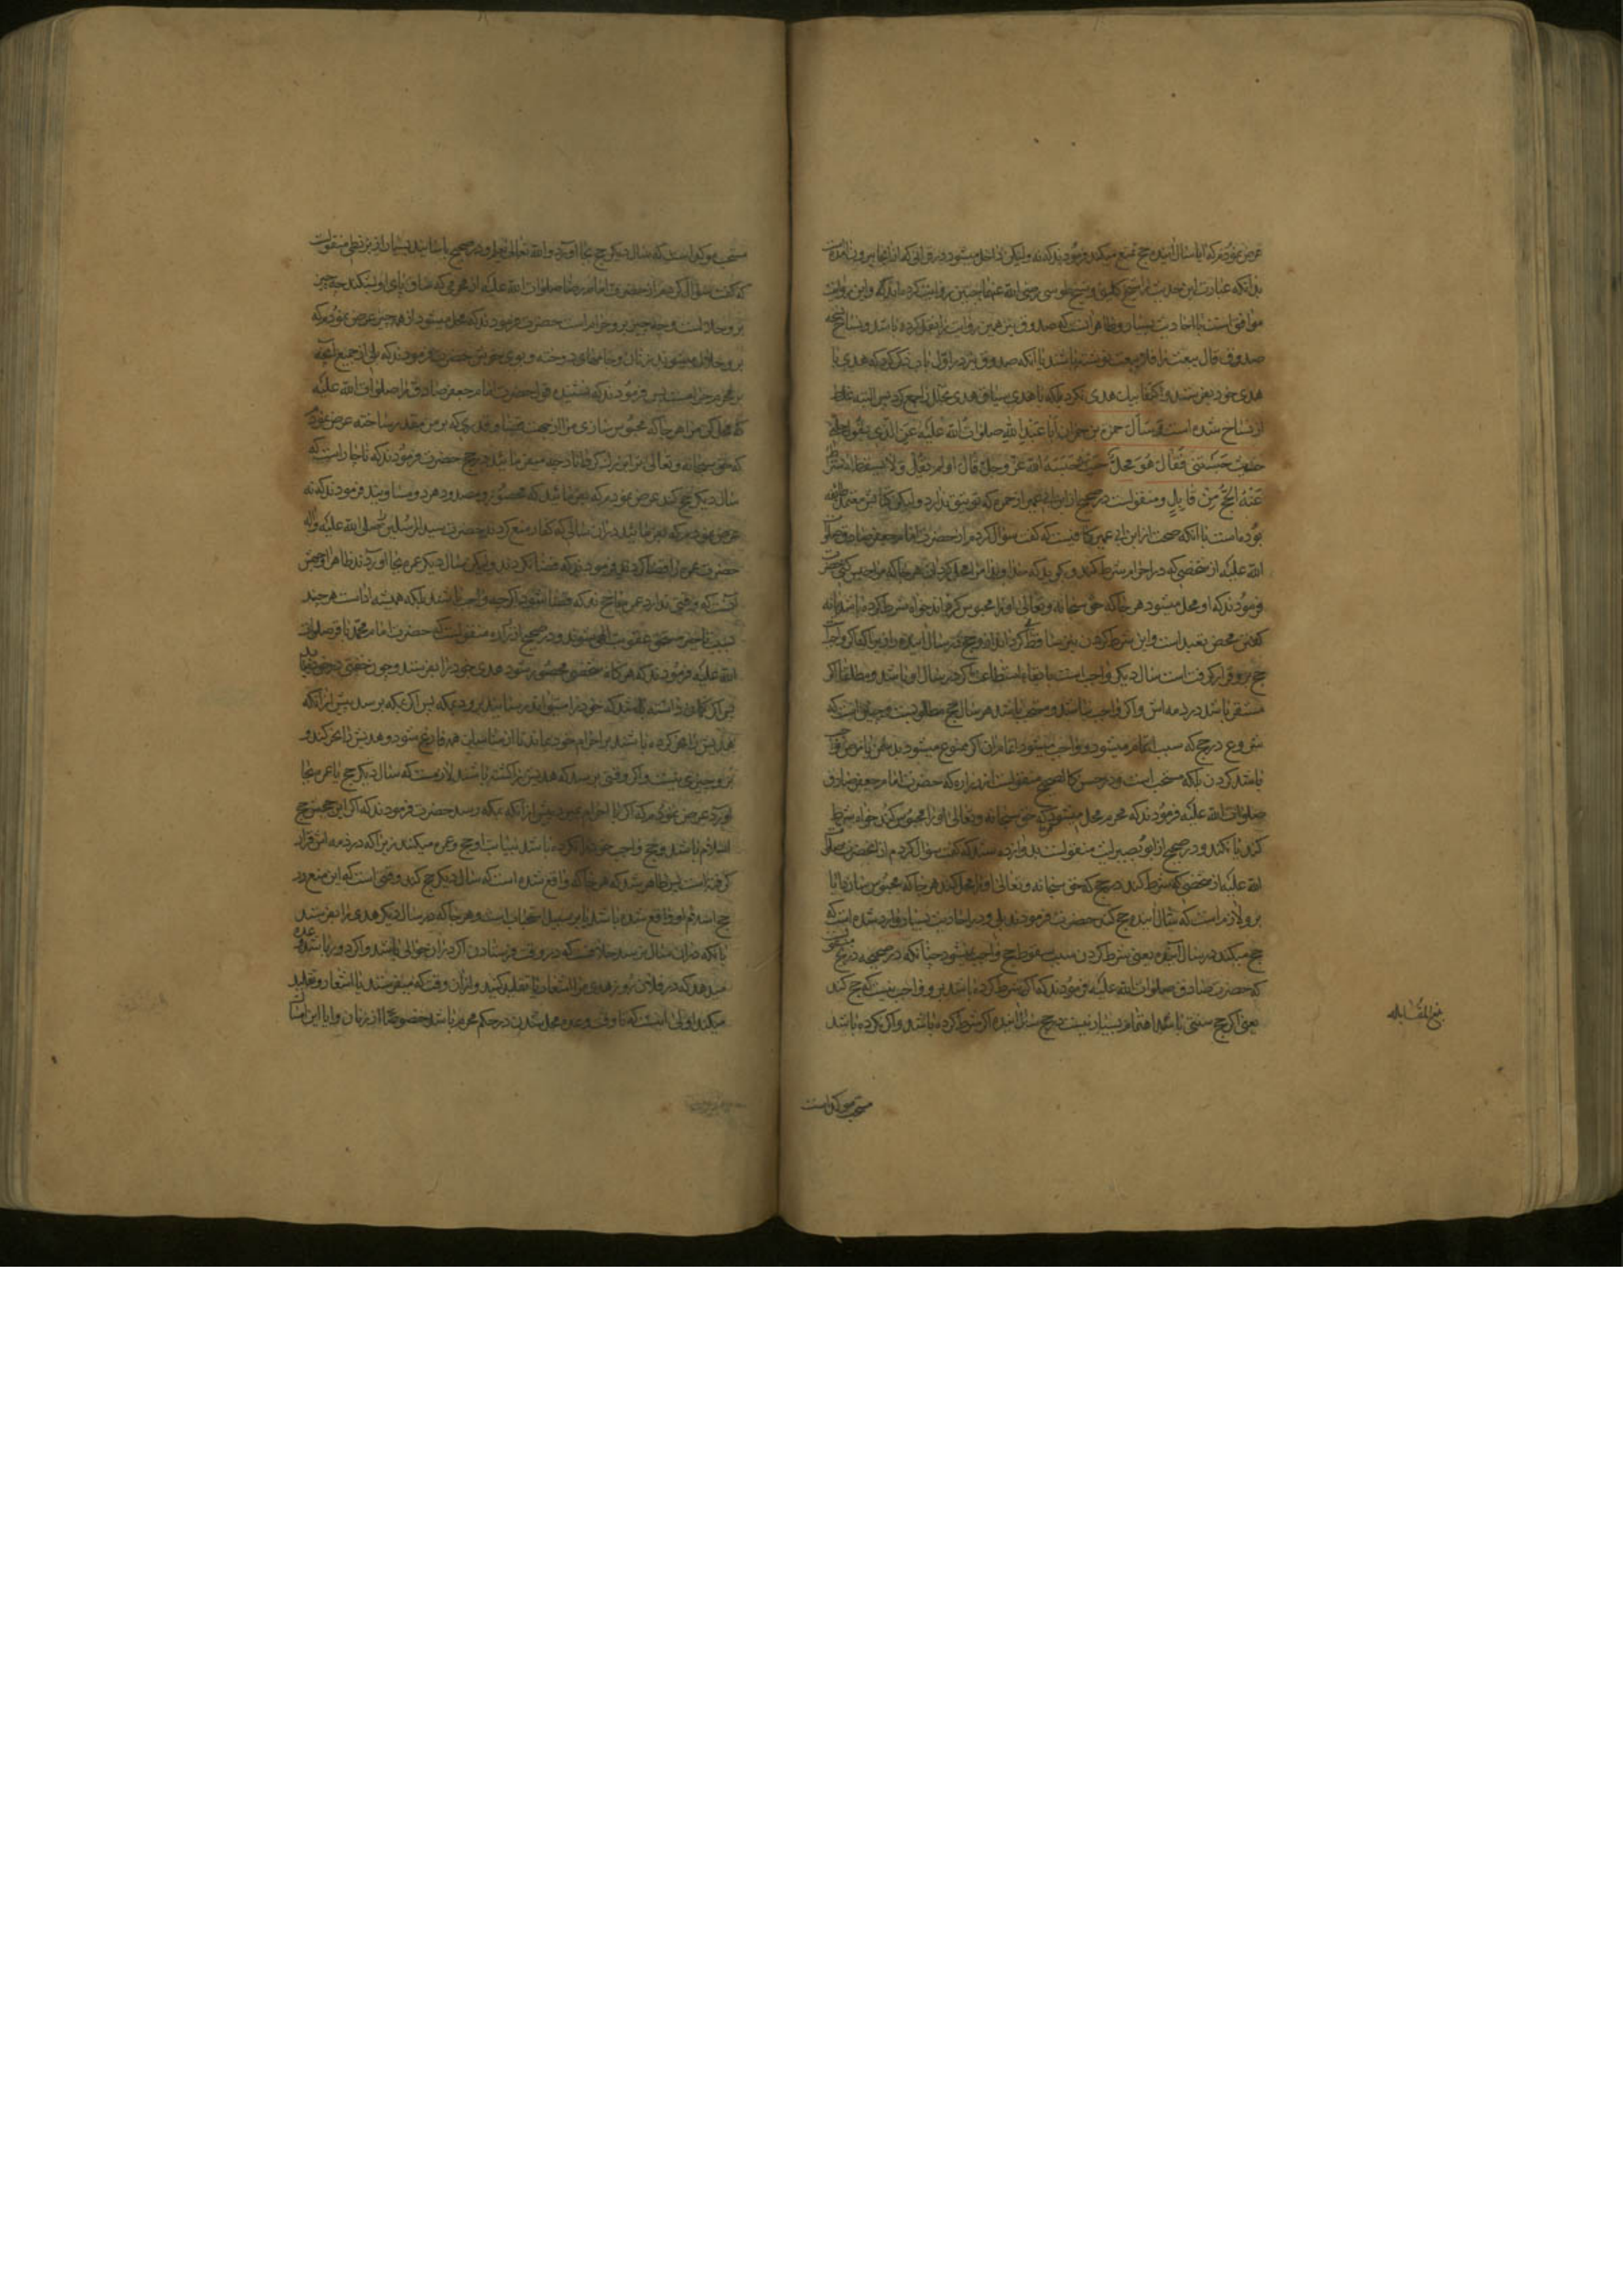 عرض نمودم که ایا سال اینده حج تمتع میکند فرمودند که نه ولیکن داخل میشود در قرانی که از انجا بیرون آمده است
بدانکه عبارت این حدیث را شیخ کلینی و شیخ طوسی رضی الله عنهما چنین روایت کرده‌اند که و این روایت
موافق است با احادیث بسیار و ظاهر انست که صدوق نیز همین روایت را نقل کرده باشد و نساخ
صدوق قال یبعث را فلا یبعث نوشته باشند با آنکه صدوق نیز در اول باب ذکر کرد که هدی با
هدی خود بفرستد و اکتفا بیک هدی نکرد بلکه با هدی سیاق هدی تحلل را جمع کرد پس البته غلط
از نساخ شده است و سأل حمزة بن حمران أبا عبد الله صلوات الله علیه عن الذی یقول حلنی
حیث حبستنی فقال هو حل حیث حبسه الله عز وجل قال او لم یقل ولا یسقط الاشتراط
عنه الحج من قابل و منقولست در صحیح از ابن ابی عمیر از حمزه که توثیق ندارد ولیکن کتابش معتمد طایفه
بوده است با آنکه صحت از ابن ابی عمیر کافیست که گفت سؤال کردم از حضرت امام جعفر صادق صلوات
الله علیه از شخصی که در احرام شرط کند و گوید که خداوندا مرا محل گردان هر جا که مرا حبس کنی حضرت
فرمودند که او محل میشود هر جا که حق سبحانه وتعالی او را محبوس گرداند خواه شرط کرده باشد یا نه
گفتن محض تعبد است و این شرط کردن نیز ساقط نگرداند از او حج در سال اینده را و این یا آنکه اگر واجب
حج برو قرار گرفت است سال دیگر واجب است با بقاء استطاعت اگر در سال او باشد و مطلقا اگر
مستقر باشد در ذمه اش و اگر واجب نباشد و مستحب باشد هر سال حج مطلوبست و چنین است که
شروع در حج که سبب اتمام میشود و واجب میشود اتمام ان اگر ممنوع میشود بدشمن یا مرض واجب
نباشد کردن بلکه مستحب است و در حسن کالصحیح منقولست از زراره که حضرت امام جعفر صادق
صلوات الله علیه فرمودند که محرم محل میشود که حق سبحانه وتعالی او را محبوس کند خواه شرط
کند یا نکند و در صحیح از ابو بصیر لیث منقولست بدوازده سند که گفت سؤال کردم از انحضرت صلوات
الله علیه از شخصی که شرط کند در حج که حق سبحانه وتعالی او را محل کند هر جا که محبوس سازد ایا
برو لازم است که سال اینده حج کند حضرت فرمودند بلی و در احادیث بسیار وارد شده است که
حج میکند در سال آینده یعنی شرط کردن سبب سقوط حج واجب نمیشود چنانکه در صحیحه ذریح
که حضرت صادق صلوات الله علیه فرمودند که اگر شرط کرده باشد برو واجب نیست که حج کند
یعنی اگر حج سنتی باشد اهتمام بسیار نیست در حج سال اینده اگر شرط کرده باشد و اگر نکرده باشد
بلغ المقابله
مستحب موکد است
مستحب موکد است که سال دیگر حج بجا آورد والله تعالی یعلم و در صحیح باسانید بسیار از بزنطی منقولست
که گفت سؤال کردم از حضرت امام رضا صلوات الله علیه از محرمی که ساق پای او بشکند چه چیز
برو حلال است و چه چیز برو حرام است حضرت فرمودند که محل میشود از همه چیز عرض نمودم که
برو حلال میشوند زنان و جامهای دوخته و بوی خوش حضرت فرمودند که بلی از جمیع آنچه
بر محرم حرامست پس فرمودند که نشنیده قول حضرت امام جعفر صادق را صلوات الله علیه
که محل کن مرا هر جا که محبوس سازی مرا از جهت قضا و قدری که بر من مقدر ساخته عرض نمودم
که حق سبحانه وتعالی ترا بزرگ گرداند چه میفرمائید در حج حضرت فرمودند که ناچار است که
سال دیگر حج کند عرض نمودم که بفرمائید که محصور و مصدود هر دو مساویند فرمودند که نه
عرض نمودم که بفرمائید در ان سالی که کفار منع کردند حضرت سید المرسلین صلی الله علیه وآله
حضرت عمره را قضا کردند فرمودند که قضا نکردند ولیکن سال دیگر عمره بجا آوردند ظاهرا وجهش
آنست که وقتی ندارد عمره یا حج نه که قضا شود اگر چه واجب باشند بلکه همیشه اداست هر چند
بسبب تاخیر مستحق عقوبت الهی شوند و در صحیح از زراره منقولست که حضرت امام محمد باقر صلوات
الله علیه فرمودند که هرگاه شخصی محصور شود هدی خود را بفرستد و چون خفتی در خود بیابد
پس اگر گمان داشته باشد که خود را میتواند رسانید برود بمکه پس اگر بمکه برسد پیش از انکه
هدیش را نحر کرده باشند بر احرام خود بماند تا از مناسک همه فارغ شود و هدیش را نحر کند و
برو چیزی نیست و اگر وقتی برسد که هدیش را کشته باشند لازمست که سال دیگر حج یا عمره بجا
آورد عرض نمودم که اگر با احرام بمیرد پیش از آنکه بمکه رسد حضرت فرمودند که اگر این حج حج
اسلام باشد و حج واجب خود را نکرده باشد بنیابت او حج و عمره میکنند زیرا که در ذمه اش قرار
گرفته است پس ظاهر شد که هر جا که واقع شده است که سال دیگر حج کند وقتی است که این منع در
حج اسلام او واقع شده باشد یا بر سبیل استحباب است و هر جا که در سال دیگر هدی را بفرستد
یا آنکه در ان سال فرستد خلافست که در وقت فرستادن اگر در ان حوالی باشد و اگر دور باشد وعده
میدهد که در فلان روز هدی مرا اشعار یا تقلید کنید و از ان وقت که میفرستند یا اشعار و تقلید
میکند اولی انست که تا وقت وعده محل شدن در حکم محرم باشد خصوصا از زنان و ایا این